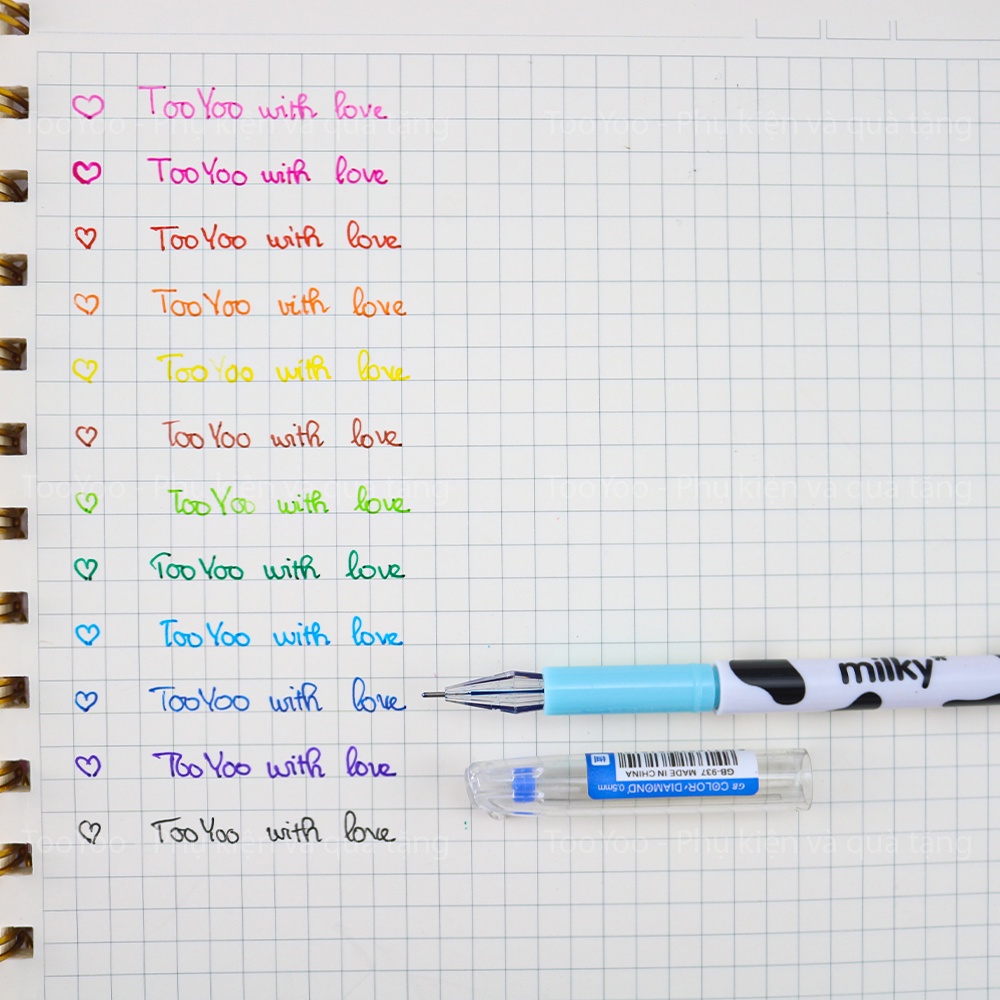 TooYoo with love
TooYoo with love
TooYoo with love
TooYoo with love
TooYoo with love
TooYoo with love
TooYoo with love
TooYoo with love
TooYoo with love
TooYoo with love
TooYoo with love
TooYoo with love
milky
G# COLOR DIAMOND 0.5mm
GB-937 MADE IN CHINA
TooYoo - Phụ kiện và quà tặng
TooYoo - Phụ kiện và quà tặng
TooYoo - Phụ kiện và quà tặng
TooYoo - Phụ kiện và quà tặng
TooYoo - Phụ kiện và quà tặng
TooYoo - Phụ kiện và quà tặng